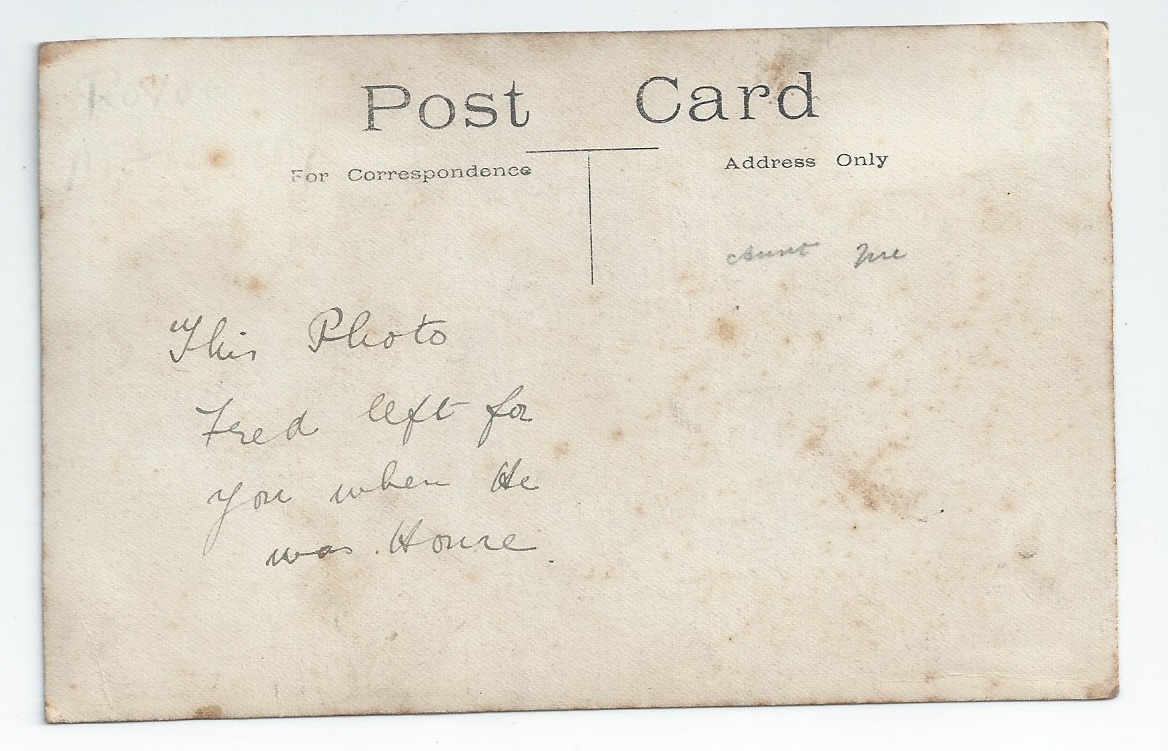 Post Card
For Correspondence
Address Only
Aunt
This Photo
Fred left for
you when He
was Home.